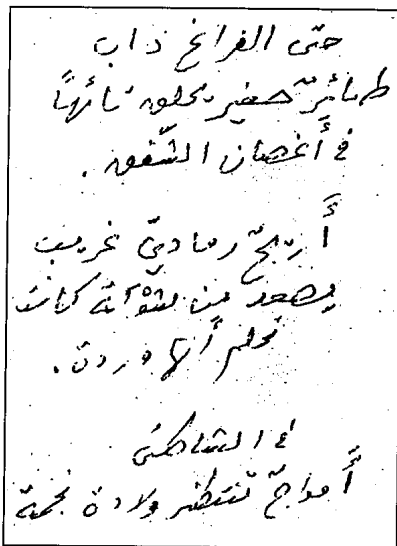 حتى الفراغ ذاب
طائرٌ صغير يحلق تائهًا
في أغصان الشّفق.
أريجٌ رماديّ غريب
يصعد من شوكة كانت
تحلم أنها وردة.
في الشاطئ
أمواجٌ تنتظر ولادة نجمة